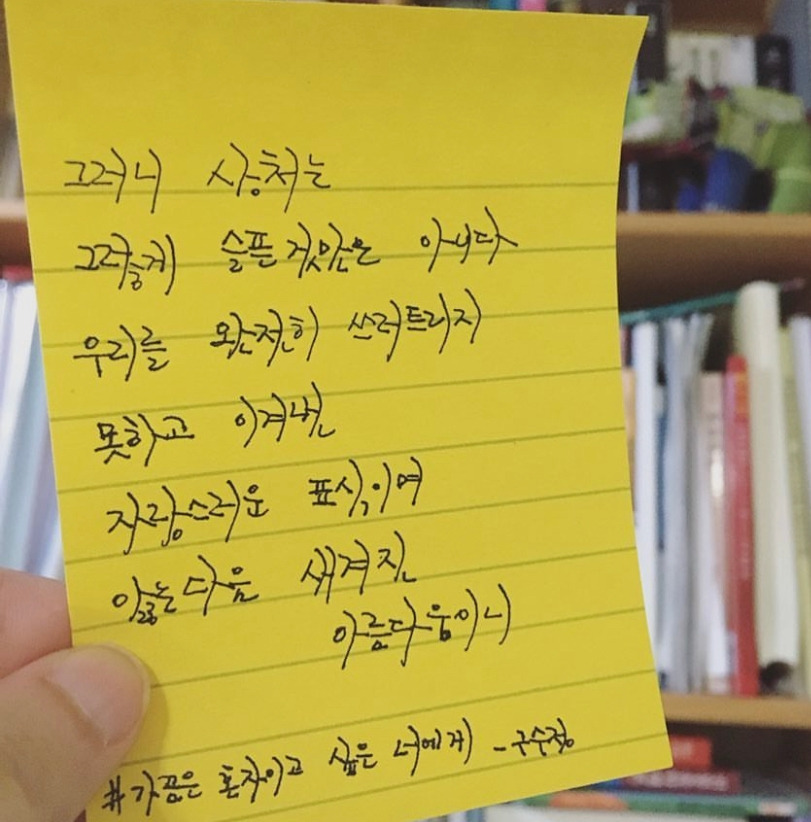 그러니 상처는
그렇게 슬픈것만은 아니다
우리를 완전히 쓰러트리지
못하고 이겨낸
자랑스러운 표식이며
앓는다음 새겨진
아름다움이니
#가끔은 혼자이고 싶은 너에게 - 구수정